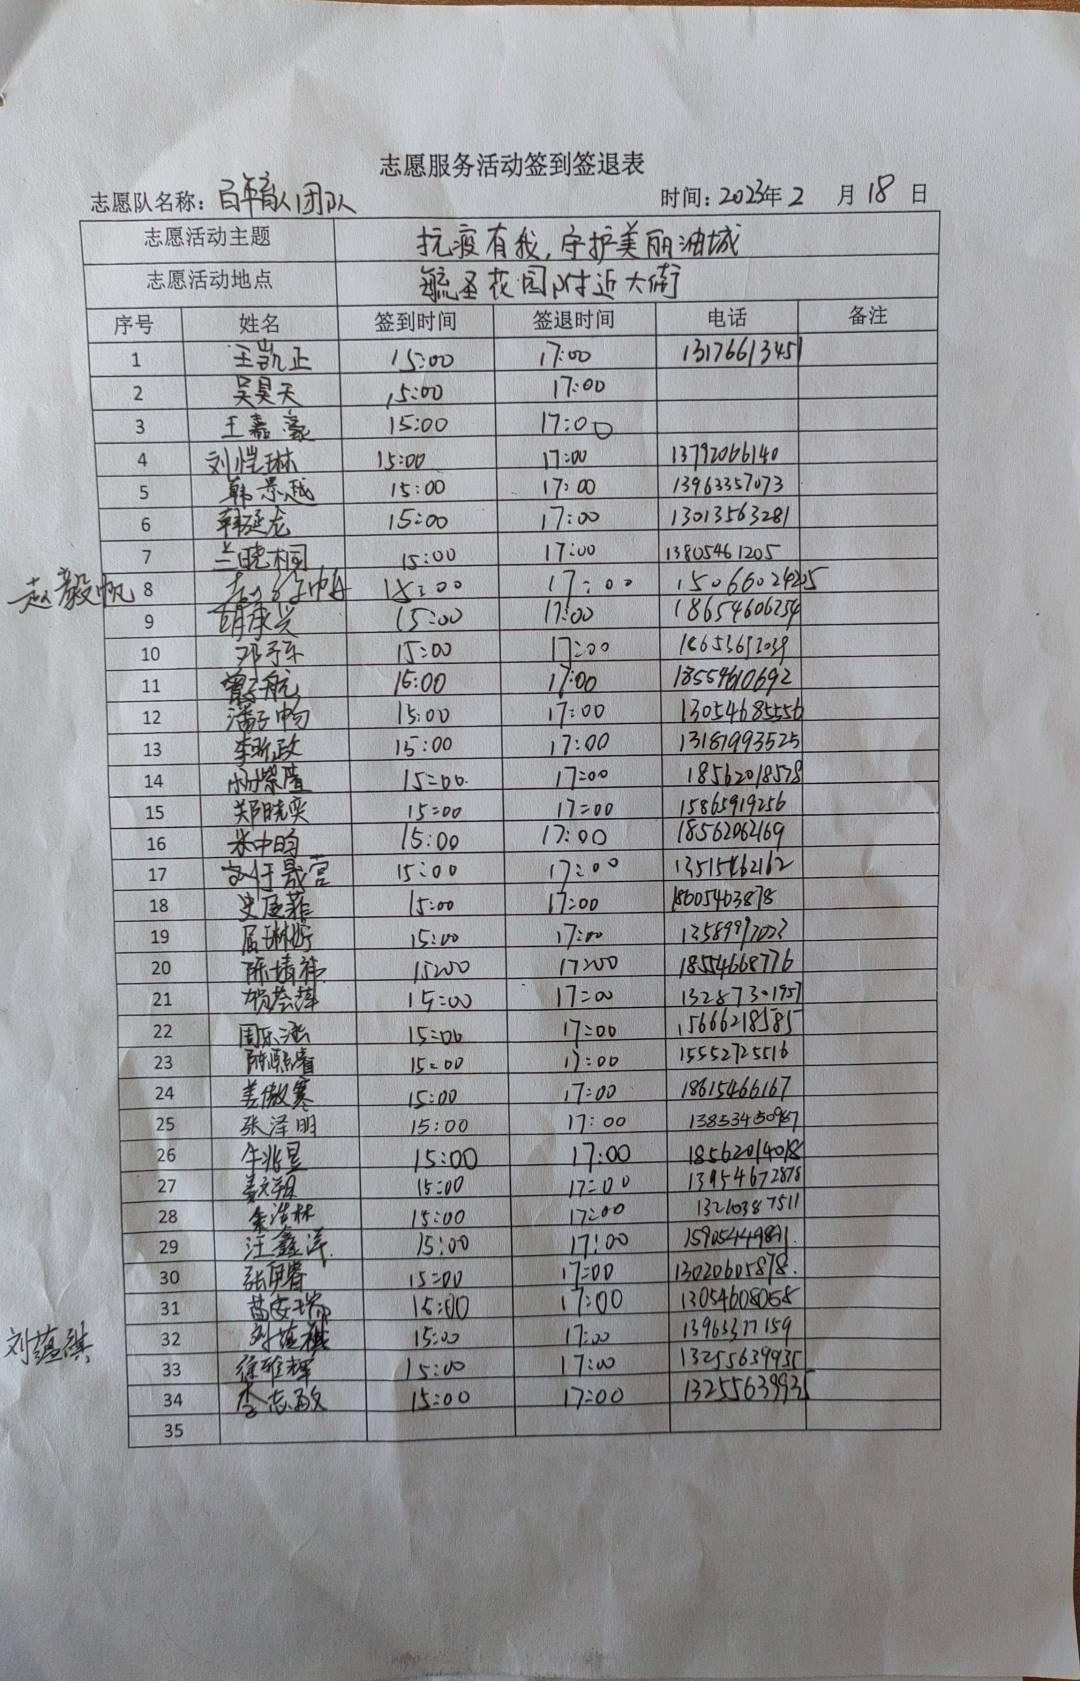 志愿服务活动签到签退表
志愿队名称：百年育人团队 时间：2023年2 月18 日
志愿活动主题 抗疫有我，守护美丽油城
志愿活动地点 毓圣花园附近大街
序号 姓名 签到时间 签退时间 电话 备注
1 王凯正 15:00 17:00 13176613451
2 吴昊天 15:00 17:00
3 王嘉豪 15:00 17:00
4 刘恺琳 15:00 17:00 13792066140
5 韩景越 15:00 17:00 13963357073
6 韩延龙 15:00 17:00 13013563281
7 兰晓桐 15:00 17:00 13805461205
赵毅帆 8 15:00 17:00 15066024205
9 胡承兴 15:00 17:00 18654606234
10 邓予乐 15:00 17:00
11 曾子航 15:00 17:00 18554610692
12 潘子畅 15:00 17:00 13054685556
13 李昕政 15:00 17:00 13181993525
14 15:00 17:00 18562018578
15 郑晓奕 15:00 17:00 15865919256
16 米中昀 15:00 17:00 18562062169
17 15:00 17:00 13515462162
18 史庭菲 15:00 17:00 18605463878
19 屈琳婷 15:00 17:00 13589997023
20 陈靖祎 15:00 17:00 18554668776
21 15:00 17:00 13287301957
22 周乐泓 15:00 17:00 15666218585
23 陈熙睿 15:00 17:00 15552725516
24 姜傲寒 15:00 17:00 18615466167
25 张泽明 15:00 17:00 13853450987
26 牛兆星 15:00 17:00 18562014018
27 15:00 17:00 13954672878
28 朱浩林 15:00 17:00 13210387511
29 汪鑫洋 15:00 17:00 15905449891
30 15:00 17:00 13020605878
31 苗安瑞 15:00 17:00 13054608058
刘蕴祺 32 刘蕴祺 15:00 17:00 13963377159
33 徐雅辉 15:00 17:00 13255639935
34 李志敏 15:00 17:00 13255639935
35